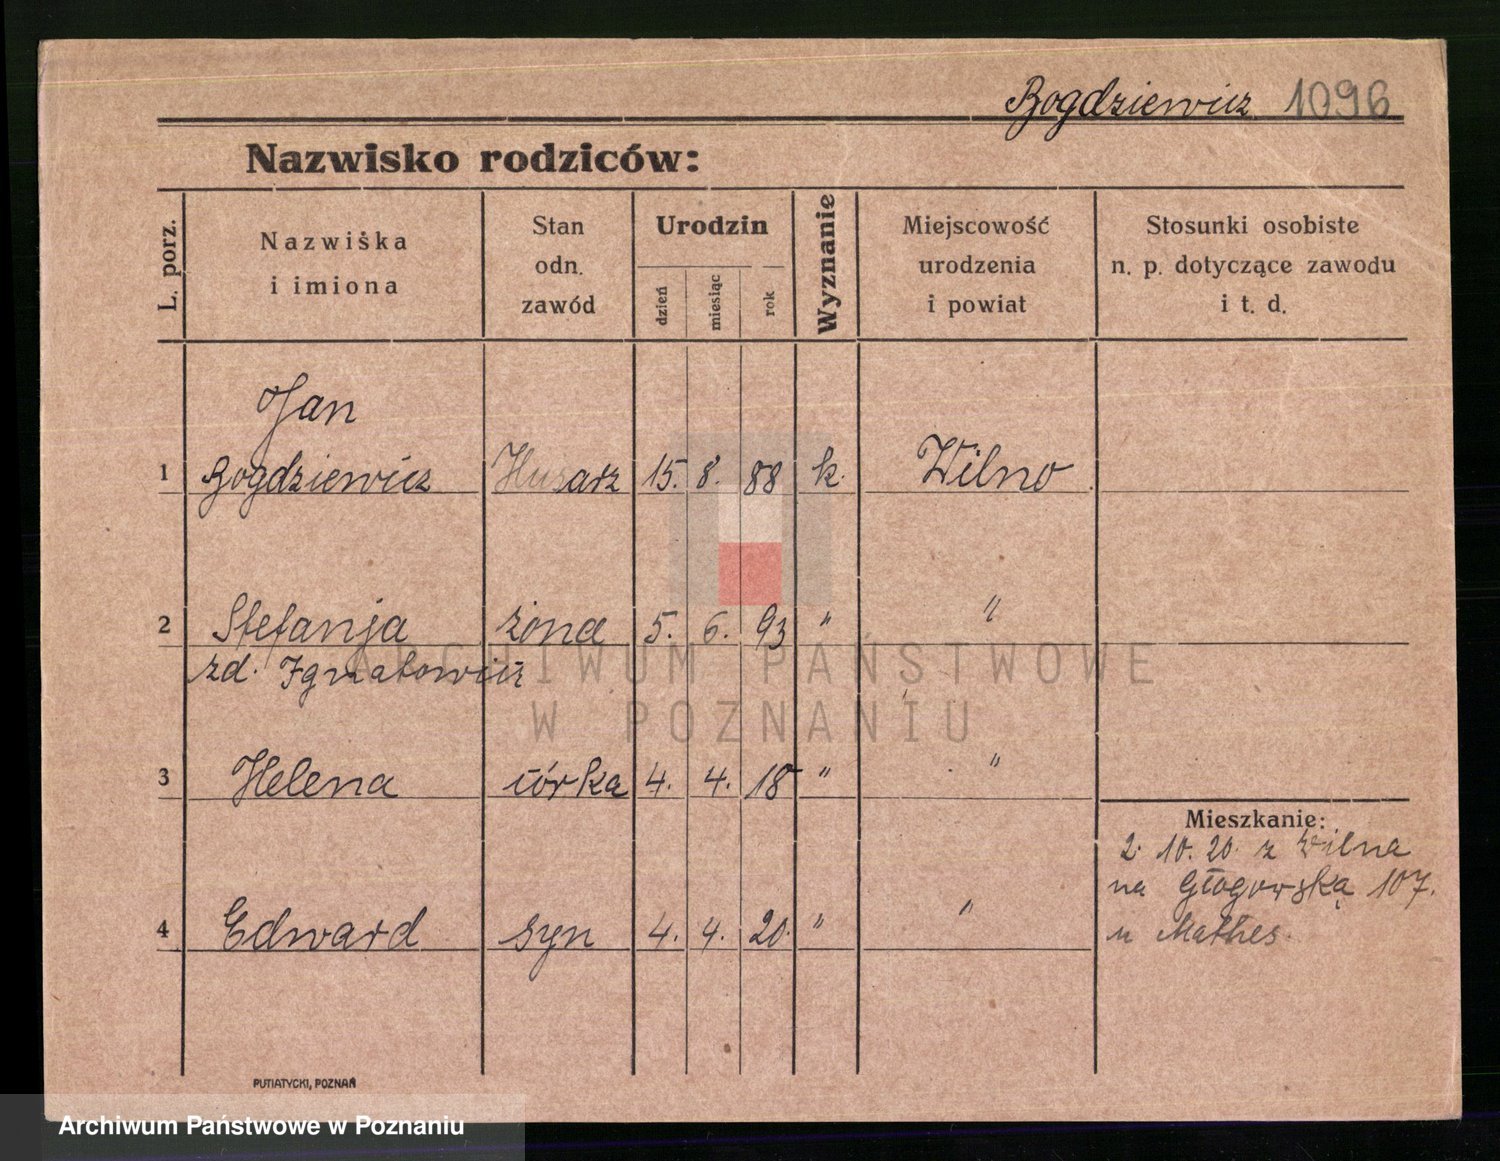 Bogdziewicz 1096
Nazwisko rodziców:
L. porz.
Nazwiska
i imiona
Stan
odn.
zawód
Urodzin
dzień
miesiąc
rok
Wyznanie
Miejscowość
urodzenia
i powiat
Stosunki osobiste
n. p. dotyczące zawodu
i t. d.
Jan
1 Bogdziewicz Husarz 15. 8. 88 k. Wilno
2 Stefanja żona 5. 6. 93 " "
zd. Ignatowicz
ARCHIWUM PAŃSTWOWE
W POZNANIU
3 Helena córka 4. 4. 18 " "
Mieszkanie:
2. 10. 20. z Wilna
na Głogowską 107.
4 Edward syn 4. 4. 20. " "
u Mathes.
PUTIATYCKI, POZNAŃ
Archiwum Państwowe w Poznaniu